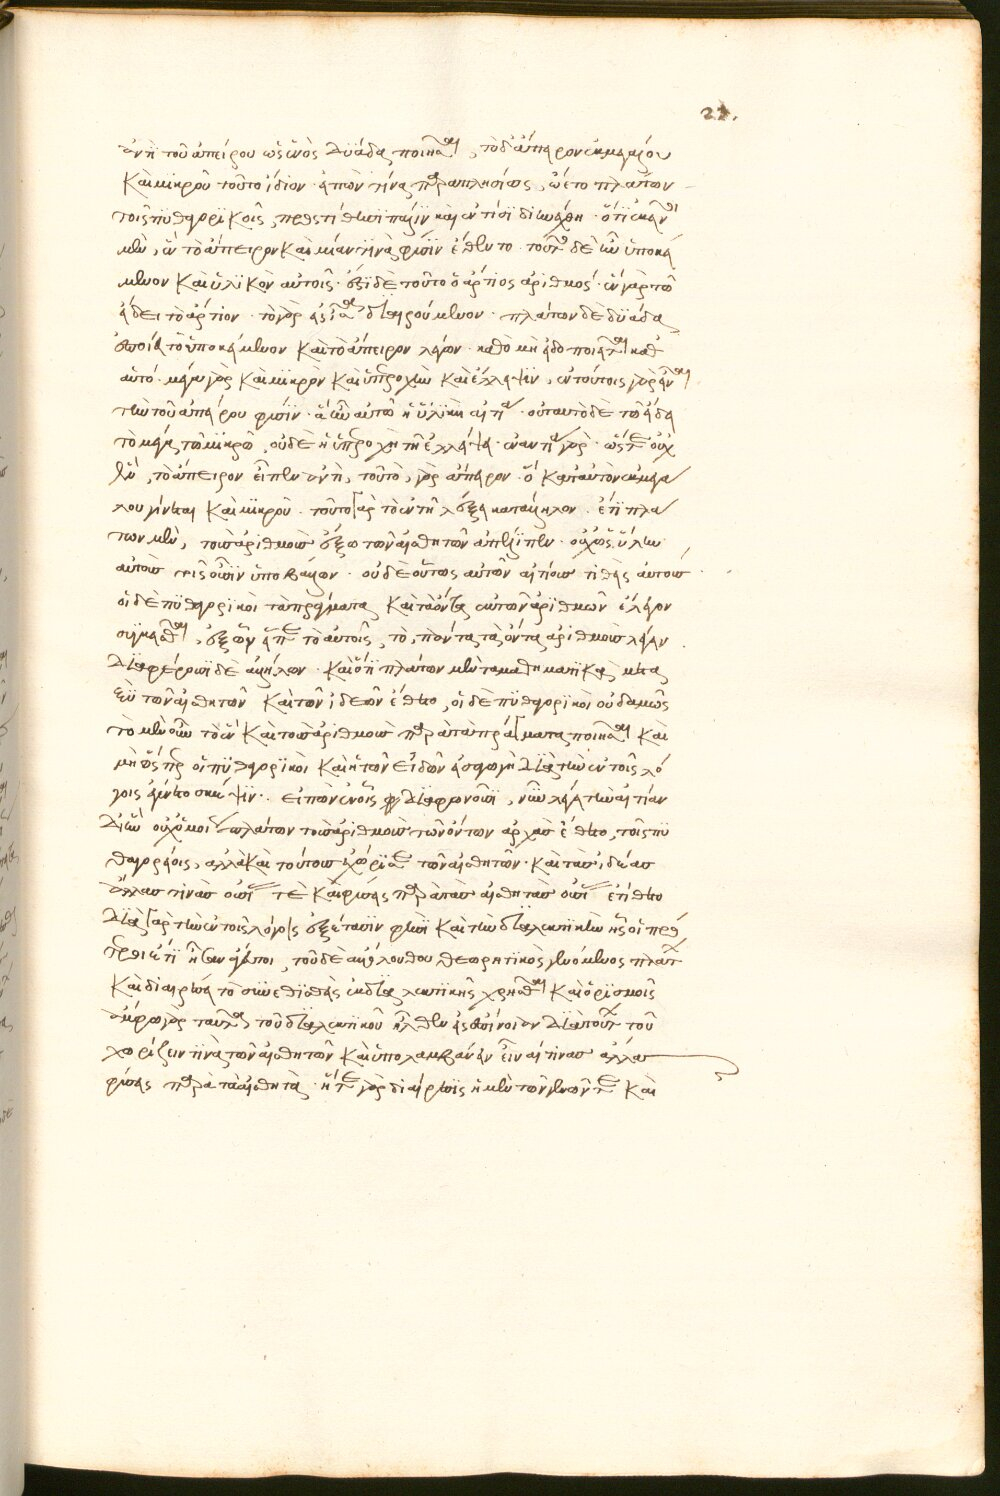 22.
ἀντὶ τοῦ ἀπείρου ὡς ἑνὸς δυάδα ποιῆσαι, τὸ δ' ἄπειρον ἐκ μεγάλου
καὶ μικροῦ τοῦτο ἴδιον · εἰπὼν τίνα παραπλησίως ᾤετο πλάτων
τοῖς πυθαγορικοῖς, προστίθησι πάλιν καὶ ἐν τίσι διηνέχθη · ὅτι ἐκεῖνοι
μὲν, ἓν τὸ ἄπειρον καὶ μίαν τινὰ φύσιν ἔθεντο · τοῦτο δὲ ἦν ὑποκεί
μενον καὶ ὑλικὸν αὐτοῖς · ἔστι δὲ τοῦτο ὁ ἄρτιος ἀριθμός · ἓν γὰρ τῷ
εἴδει τὸ ἄρτιον · τὸ γὰρ εἰς ἴσα διαιρούμενον · πλάτων δὲ δυάδα
ἐποίει τὸ ὑποκείμενον καὶ τὸ ἄπειρον λέγων · καθὸ μὴ εἰδοποιεῖται καθ'
αὑτό · μέγα γὰρ καὶ μικρὸν καὶ ὑπεροχὴν καὶ ἔλλειψιν, ἐν τούτοις γὰρ εἶναι
τὴν τοῦ ἀπείρου φύσιν · ἃ ἦν αὐτῷ ἡ ὑλικὴ αἰτία · οὐ ταὐτὸ δὲ τῷ εἴδει
τὸ μέγα τῷ μικρῷ, οὐδὲ ἡ ὑπεροχὴ τῇ ἐλλείψει · ἐναντία γὰρ · ὥστε οὐχ
ἓν, τὸ ἄπειρον εἶπεν ἀντὶ, τοῦ τὸ, γὰρ ἄπειρον · ὃ κατ' αὐτὸν ἐκ μεγά
λου γίνεται καὶ μικροῦ · τοῦτο γὰρ τὸ ἐν τῇ λέξει κατάλληλον · ἔτι πλά
των μὲν, τοὺς ἀριθμοὺς ἔξω τῶν αἰσθητῶν ἀπέλιπεν · οὐχ ὡς ὕλην
αὐτοὺς τοῖς οὖσιν ὑποβάλλων · οὐδὲ οὕτως αὐτῶν αἰτίους τιθεὶς αὐτούς
οἱ δὲ πυθαγορικοὶ τὰ πράγματα καὶ τὰ ὄντα ἐκ τῶν ἀριθμῶν ἔλεγον
συγκεῖσθαι, ἐξ ὧν εἴπετο αὐτοῖς, τὸ, πάντα τὰ ὄντα ἀριθμοὺς λέγειν
διαφέρουσι δὲ ἀλλήλων · καὶ ὅτι πλάτων μὲν τὰ μαθηματικὰ μετα
ξὺ τῶν αἰσθητῶν καὶ τῶν ἰδεῶν ἔθετο, οἱ δὲ πυθαγορικοὶ οὐδαμῶς
τὸ μὲν οὖν τὸ ἓν καὶ τοὺς ἀριθμοὺς παρὰ τὰ πράγματα ποιῆσαι καὶ
μὴ ὥσπερ οἱ πυθαγορικοὶ καὶ ἡ τῶν εἰδῶν εἰσαγωγὴ διὰ τὴν ἐν τοῖς λό
γοις ἐγένετο σκέψιν · εἰπὼν ἐν οἷς διαφωνοῦσι, νῦν λέγει τὴν αἰτίαν
δι' ἣν οὐχ ὁμοίως πλάτων τοὺς ἀριθμοὺς τῶν ὄντων ἀρχὰς ἔθετο, τοῖς πυ
θαγορείοις, ἀλλὰ καὶ τούτους ἐχώρισε τῶν αἰσθητῶν · καὶ τὰς ἰδέας
ἄλλας τινὰς οὐσίας τὲ καὶ φύσεις παρὰ τὰς αἰσθητὰς οὐσίας ἐτίθετο
διὰ γὰρ τὴν ἐν τοῖς λόγοις ἐξέτασιν φησὶ καὶ τὴν διαλεκτικὴν ἧς οἱ πρό
τεροι ἔτι ἦσαν ἄγευστοι, τοῦ δὲ ἀκολούθου θεωρητικὸς γενόμενος πλάτων
καὶ διαιρεῖν τὸ συνεθισθεὶς ἐκ διαλεκτικῆς χρῆσθαι καὶ ὁρισμοῖς
ἀμφω γὰρ ταῦτα τοῦ διαλεκτικοῦ ἦλθεν εἰς ἔννοιαν διὰ τούτων τοῦ
χωρίζειν τινὰ τῶν αἰσθητῶν καὶ ὑπολαμβάνειν εἶναί τινας ἄλλας
φύσεις παρὰ τὰ αἰσθητὰ · ἥ τε γὰρ διαίρεσις ἡ μὲν τῶν γενῶν τε καὶ